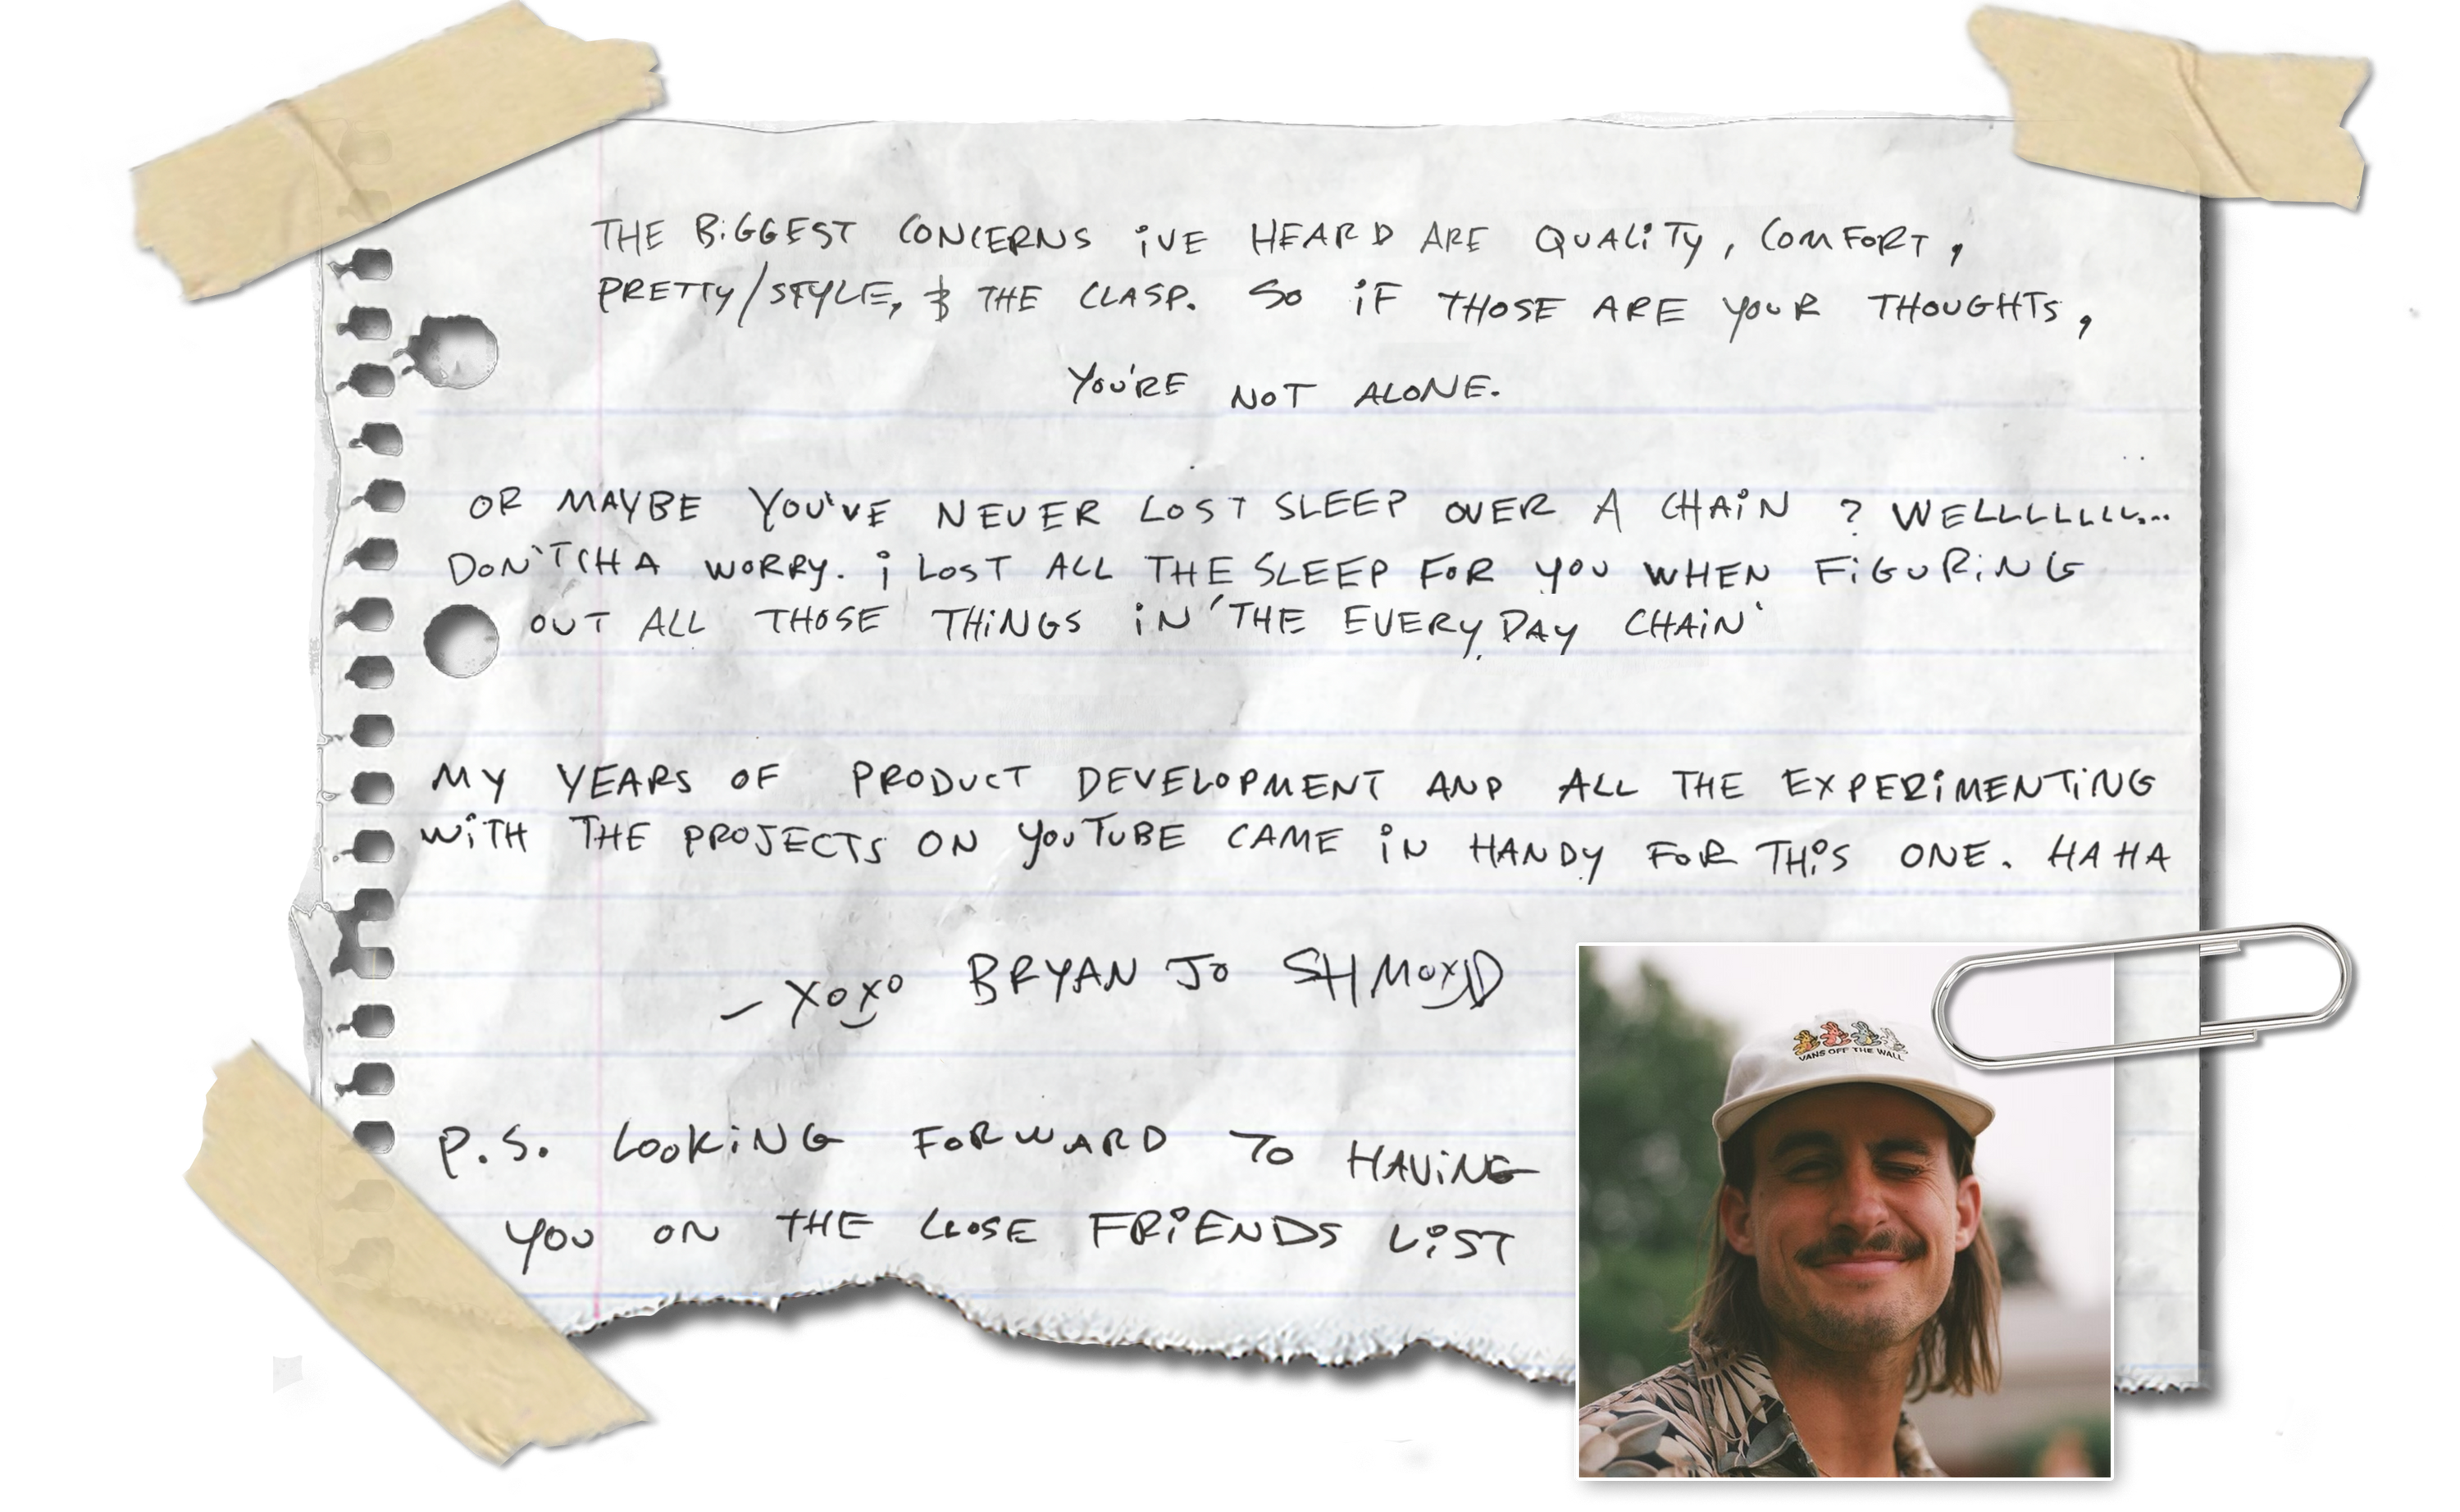 THE BiGGEST CONCERNS iVE HEARD ARE QUALiTy, COMFORT,
PRETTy/STYLE, & THE CLASP. SO iF THOSE ARE YOUR THOUGHTS,
YOU'RE NOT ALONE.
OR MAYBE YOU'VE NEVER LOST SLEEP OVER A CHAiN ? WELLLLLLL...
DON'TCHA WORRY. i LOST ALL THE SLEEP FOR YOU WHEN FiGURiNG
OUT ALL THOSE THiNGS iN 'THE EVERY DAY CHAiN'
MY YEARS OF PRODUCT DEVELOPMENT AND ALL THE EXPERiMENTiNG
WiTH THE PROJECTS ON YOUTUBE CAME iN HANDY FOR THiS ONE. HAHA
- XOXO BRYAN JO SHMOXD
VANS OFF THE WALL
P.S. LOOKiNG FORWARD TO HAViNG
YOU ON THE CLOSE FRiENDS LiST